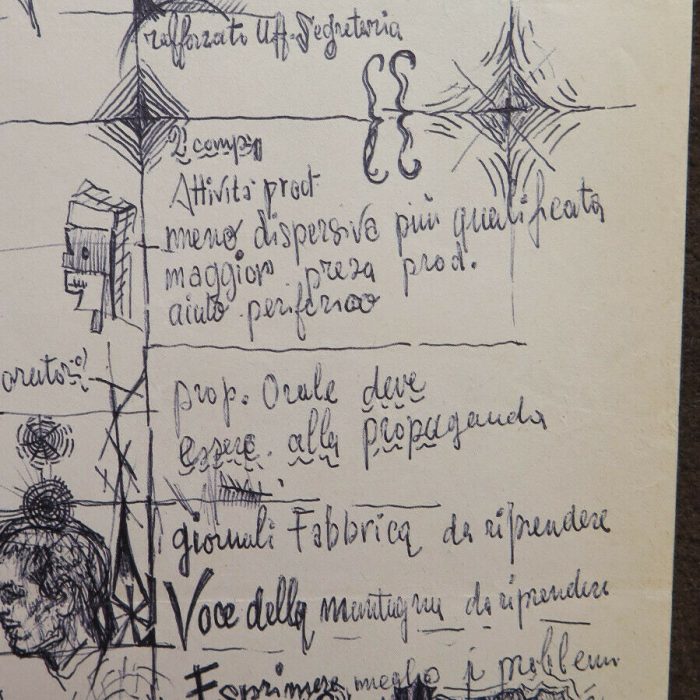 rafforzato Uff. Segreteria
2 comp
Attività prod
meno dispersiva più qualificata
maggior presa prod.
aiuto periferico
oratori
prop. Orale deve
essere alla propaganda
giornali Fabbrica da riprendere
Voce della montagna da riprendere
Esprimere meglio i problemi